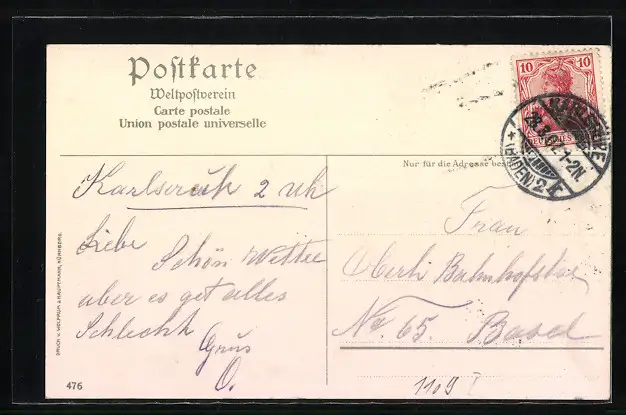 Postkarte
Weltpostverein
Carte postale
Union postale universelle
Nur für die Adresse
10 10
KARLSRUHE
1-2N.
* (BADEN) 2
Karlsruh 2 Uh
Liebe
Schön Wetter
aber es get alles
Schlecht
Grus
O.
Frau
Oberli Bahnhofstr
No. 65. Basel
1109
DRUCK V. WOLFRUM & HAUPTMANN, NÜRNBERG.
476